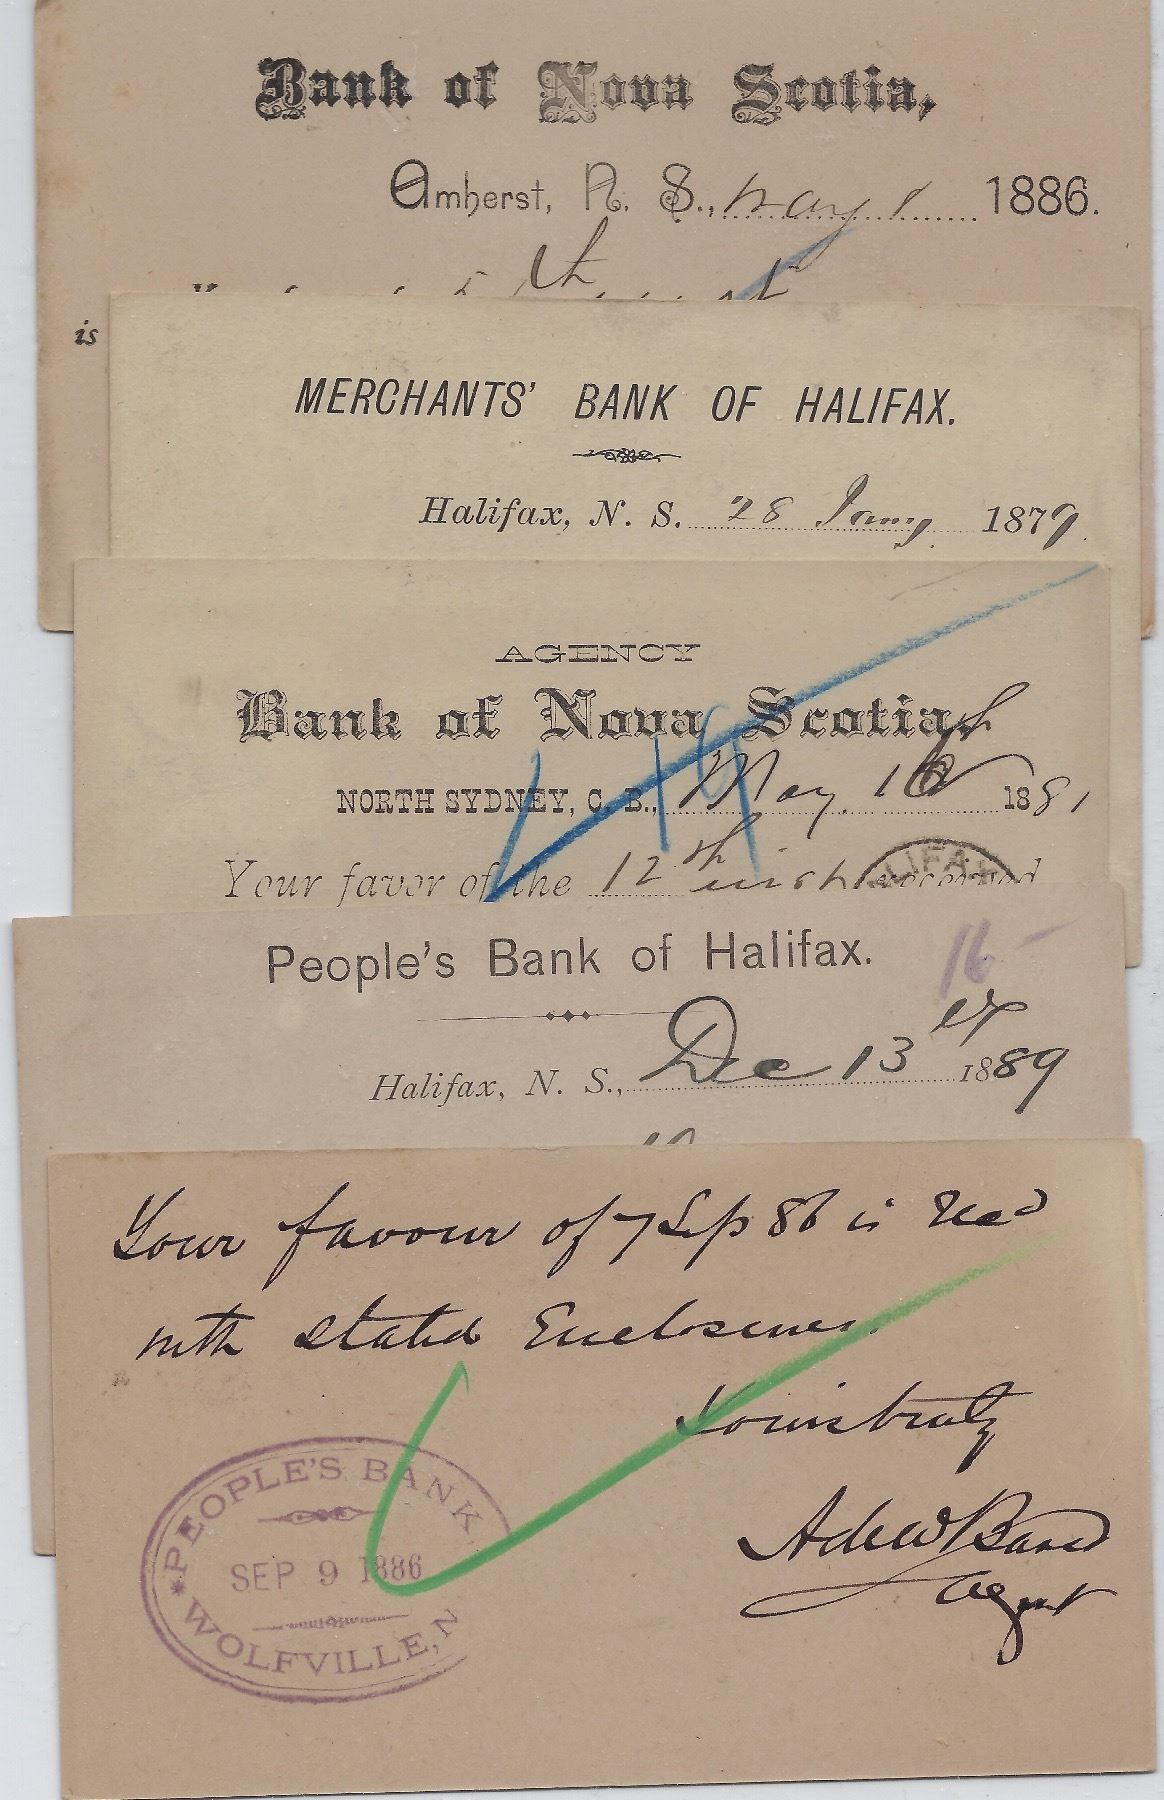 Bank of Nova Scotia,
Amherst, N. S., May 1 1886.
is
MERCHANTS' BANK OF HALIFAX.
Halifax, N. S. 28 Jany 1879
AGENCY
Bank of Nova Scotia
NORTH SYDNEY, C. B., May 16th 1881
19
Your favor of the 12th inst received
HALIFAX
People's Bank of Halifax.
16
Halifax, N. S., Dec 13 1889
Your favour of 7 Sep 86 is Recd
with stated Enclosures.
Yours truly
Agent
PEOPLE'S BANK
SEP 9 1886
WOLFVILLE, N